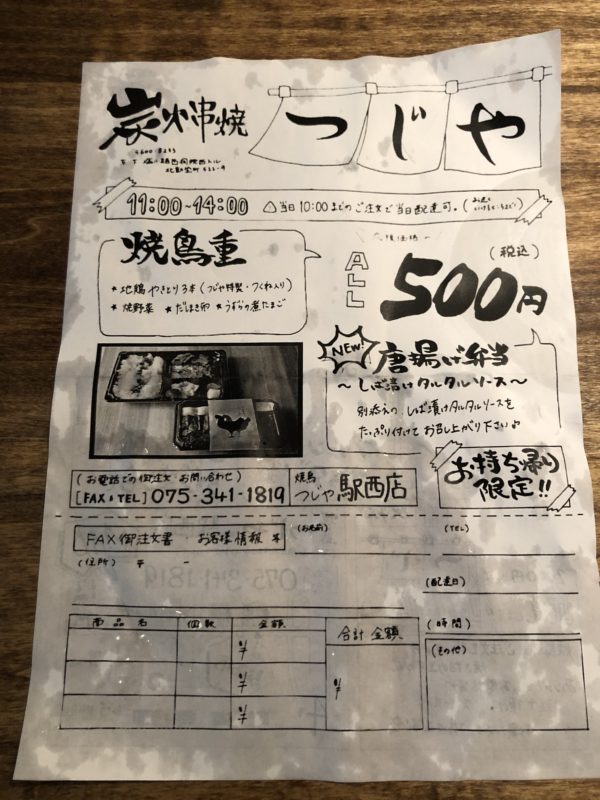 炭火串焼
つじや
〒600-8233
11:00~14:00
△当日10:00までのご注文で当日配達可。
焼鳥重
★地鶏やきとり3本(つじや特製・つくね入り)
★焼野菜 ★だしまき卵 ★うずらの煮たまご
ALL
500円
(税込)
NEW!
唐揚げ弁当
~しば漬けタルタルソース~
別添えのしば漬けタルタルソースを
たっぷり付けてお召し上がり下さい♪
お持ち帰り
限定!!
(お電話での御注文・お問い合わせ)
[FAX&TEL] 075-341-1819
焼鳥
つじや 駅西店
FAX御注文書・お客様情報
(お名前)
(TEL)
(住所) 〒 -
(配達日)
(時間)
商品名 個数 金額 合計金額
¥
¥
¥
¥
(その他)